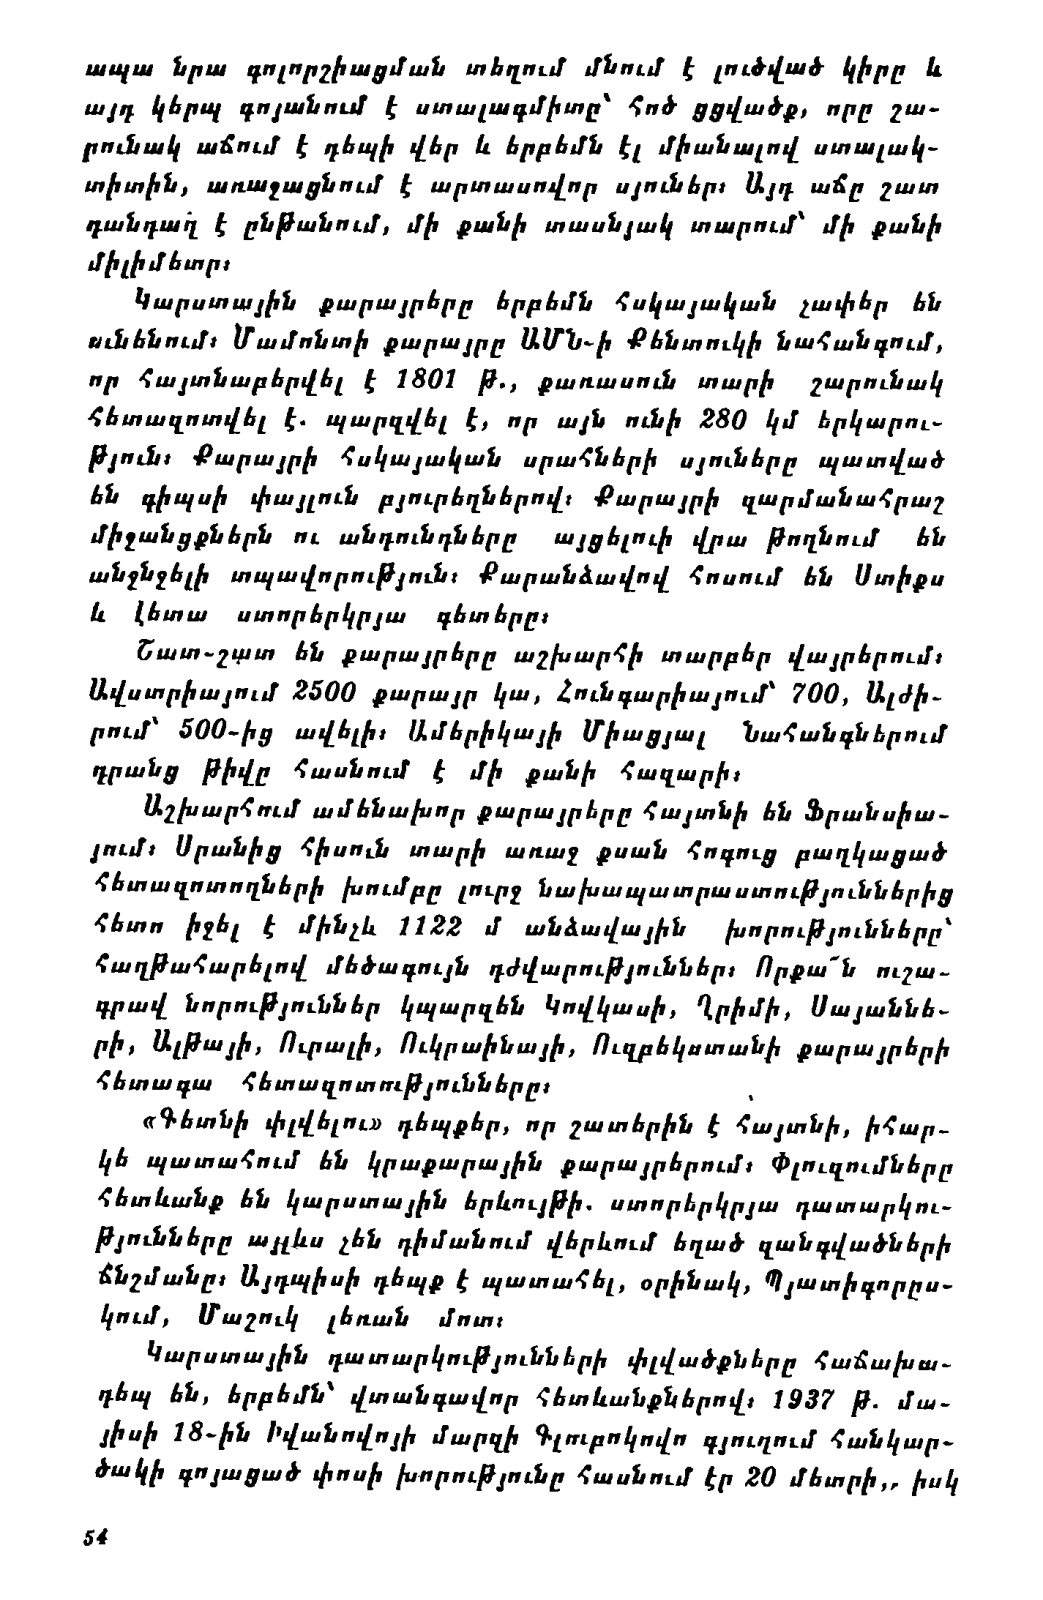 ապա նրա գոլորշիացման տեղում մնում է լուծված կիրը և
այդ կերպ գոյանում է ստալագմիտը՝ հոծ ցցվածք, որը շա-
րունակ աճում է դեպի վեր և երբեմն էլ միանալով ստալակ-
տիտին, առաջացնում է արտասովոր սյուներ։ Այդ աճը շատ
դանդաղ է ընթանում, մի քանի տասնյակ տարում՝ մի քանի
միլիմետր։
Կարստային քարայրերը երբեմն հսկայական չափեր են
ունենում։ Մամոնտի քարայրը ԱՄՆ-ի Քենտուկի նահանգում,
որ հայտնաբերվել է 1801 թ., քառասուն տարի շարունակ
հետազոտվել է. պարզվել է, որ այն ունի 280 կմ երկարու-
թյուն։ Քարայրի հսկայական սրահների սյուները պատված
են գիպսի փայլուն բյուրեղներով։ Քարայրի զարմանահրաշ
միջանցքներն ու անդունդները այցելուի վրա թողնում են
անջնջելի տպավորություն։ Քարանձավով հոսում են Ստիքս
և Լետա ստորերկրյա գետերը։
Շատ-շատ են քարայրերը աշխարհի տարբեր վայրերում։
Ավստրիայում 2500 քարայր կա, Հունգարիայում՝ 700, Ալժի-
րում՝ 500-ից ավելի։ Ամերիկայի Միացյալ Նահանգներում
դրանց թիվը հասնում է մի քանի հազարի։
Աշխարհում ամենախոր քարայրերը հայտնի են Ֆրանսիա-
յում։ Սրանից հիսուն տարի առաջ քսան հոգուց բաղկացած
հետազոտողների խումբը լուրջ նախապատրաստություններից
հետո իջել է մինչև 1122 մ անձավային խորությունները՝
հաղթահարելով մեծագույն դժվարություններ։ Որքա՜ն ուշա-
գրավ նորություններ կպարզեն Կովկասի, Ղրիմի, Սայաննե-
րի, Ալթայի, Ուրալի, Ուկրաինայի, Ուզբեկստանի քարայրերի
հետագա հետազոտությունները։
«Գետնի փլվելու» դեպքեր, որ շատերին է հայտնի, իհար-
կե պատահում են կրաքարային քարայրերում։ Փլուզումները
հետևանք են կարստային երևույթի. ստորերկրյա դատարկու-
թյունները այլևս չեն դիմանում վերևում եղած զանգվածների
ճնշմանը։ Այդպիսի դեպք է պատահել, օրինակ, Պյատիգորըս-
կում, Մաշուկ լեռան մոտ։
Կարստային դատարկությունների փլվածքները հաճախա-
դեպ են, երբեմն՝ վտանգավոր հետևանքներով։ 1937 թ. մա-
յիսի 18-ին Իվանովոյի մարզի Գլուբոկովո գյուղում հանկար-
ծակի գոյացած փոսի խորությունը հասնում էր 20 մետրի,, իսկ
54